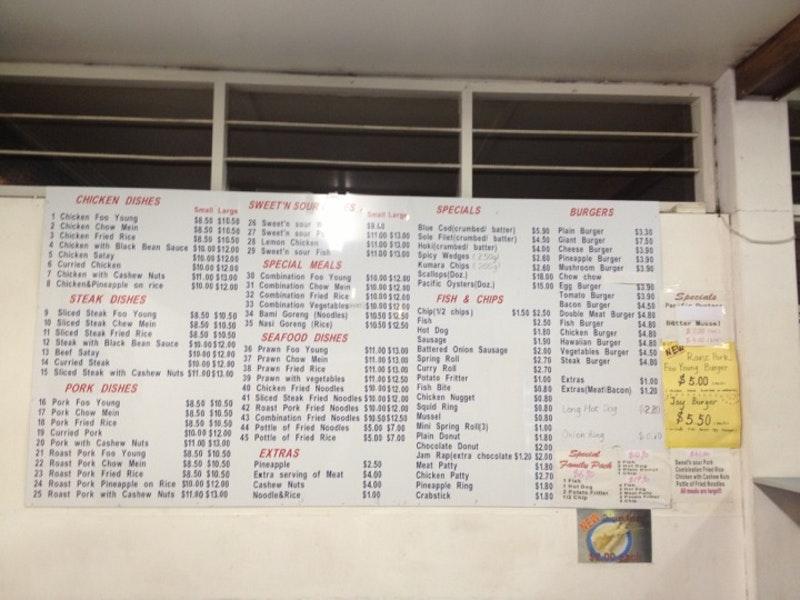 CHICKEN DISHES
Small Large
1 Chicken Foo Young $8.50 $10.50
2 Chicken Chow Mein $8.50 $10.50
3 Chicken Fried Rice $8.50 $10.50
4 Chicken with Black Bean Sauce $10.00 $12.00
5 Chicken Satay $10.00 $12.00
6 Curried Chicken $10.00 $12.00
7 Chicken with Cashew Nuts $11.00 $13.00
8 Chicken&Pineapple on rice $10.00 $12.00
STEAK DISHES
9 Sliced Steak Foo Young $8.50 $10.50
10 Sliced Steak Chew Mein $8.50 $10.50
11 Sliced Steak Fried Rice $8.50 $10.50
12 Steak with Black Bean Sauce $10.00 $12.00
13 Beef Satay $10.00 $12.00
14 Curried Steak $10.00 $12.00
15 Sliced Steak with Cashew Nuts $11.00 $13.00
PORK DISHES
16 Pork Foo Young $8.50 $10.50
17 Pork Chow Mein $8.50 $10.50
18 Pork Fried Rice $8.50 $10.50
19 Curried Pork $10.00 $12.00
20 Pork with Cashew Nuts $11.00 $13.00
21 Roast Pork Foo Young $8.50 $10.50
22 Roast Pork Chow Mein $8.50 $10.50
23 Roast Pork Fried Rice $8.50 $10.50
24 Roast Pork Pineapple on Rice $10.00 $12.00
25 Roast Pork with Cashew Nuts $11.00 $13.00
SWEET'N SOUR
Small Large
26 Sweet'n sour
27 Sweet'n sour $11.00 $13.00
28 Lemon Chicken $11.00 $13.00
29 Sweet'n sour Fish $11.00 $13.00
SPECIAL MEALS
30 Combination Foo Young $10.00 $12.00
31 Combination Chow Mein $10.00 $12.00
32 Combination Fried Rice $10.00 $12.00
33 Combination Vegetables $10.00 $12.00
34 Bami Goreng (Noodles) $10.50 $12.50
35 Nasi Goreng (Rice) $10.50 $12.50
SEAFOOD DISHES
36 Prawn Foo Young $11.00 $13.00
37 Prawn Chow Mein $11.00 $13.00
38 Prawn Fried Rice $11.00 $13.00
39 Prawn with vegetables $11.00 $12.50
40 Chicken Fried Noodles $10.00 $12.00
41 Sliced Steak Fried Noodles $10.00 $12.00
42 Roast Pork Fried Noodles $10.00 $12.00
43 Combination Fried Noodles $10.50 $12.50
44 Pottle of Fried Noodles $5.00 $7.00
45 Pottle of Fried Rice $5.00 $7.00
EXTRAS
Pineapple $2.50
Extra serving of Meat $4.00
Cashew Nuts $4.00
Noodle&Rice $1.00
SPECIALS
Blue Cod(crumbed/ batter) $5.90
Sole Filet(crumbed/ batter) $4.50
Hoki(crumbed/ batter) $4.00
Spicy Wedges $2.60
Kumara Chips $2.60
Scallops(Doz.) $18.00
Pacific Oysters(Doz.) $15.00
FISH & CHIPS
Chip(1/2 chips) $1.50 $2.50
Fish $2.50
Hot Dog $1.80
Sausage $1.90
Battered Onion Sausage $2.00
Spring Roll $2.70
Curry Roll $2.70
Potato Fritter $1.00
Fish Bite $0.80
Chicken Nugget $0.80
Squid Ring $0.80
Mussel $0.80
Mini Spring Roll(3) $1.00
Plain Donut $1.80
Chocolate Donut $2.00
Jam Rap(extra chocolate $1.20 $2.00
Meat Patty $1.80
Chicken Patty $2.70
Pineapple Ring $1.80
Crabstick $1.80
BURGERS
Plain Burger $3.30
Giant Burger $7.50
Cheese Burger $3.90
Pineapple Burger $3.90
Mushroom Burger $3.90
Chow chow
Egg Burger $3.90
Tomato Burger $3.90
Bacon Burger $4.50
Double Meat Burger $4.80
Fish Burger $4.80
Chicken Burger $4.80
Hawaiian Burger $4.80
Vegetables Burger $4.50
Steak Burger $4.80
Extras $1.00
Extras(Meat/Bacon) $1.20
Long Hot Dog $2.20
Onion Ring
Special
Family Pack
1 Fish
1 Hot Dog
2 Potato Fritter
1/2 Chip
Specials
Better Mussel
NEW
Roast Pork
Foo Young Burger
$5.00
Joy Burger
$5.50
Sweet'n sour Pork
Combination Fried Rice
Chicken with Cashew Nuts
Pottle of Fried Noodles
All meals are large!!!
NEW
$2.00 each